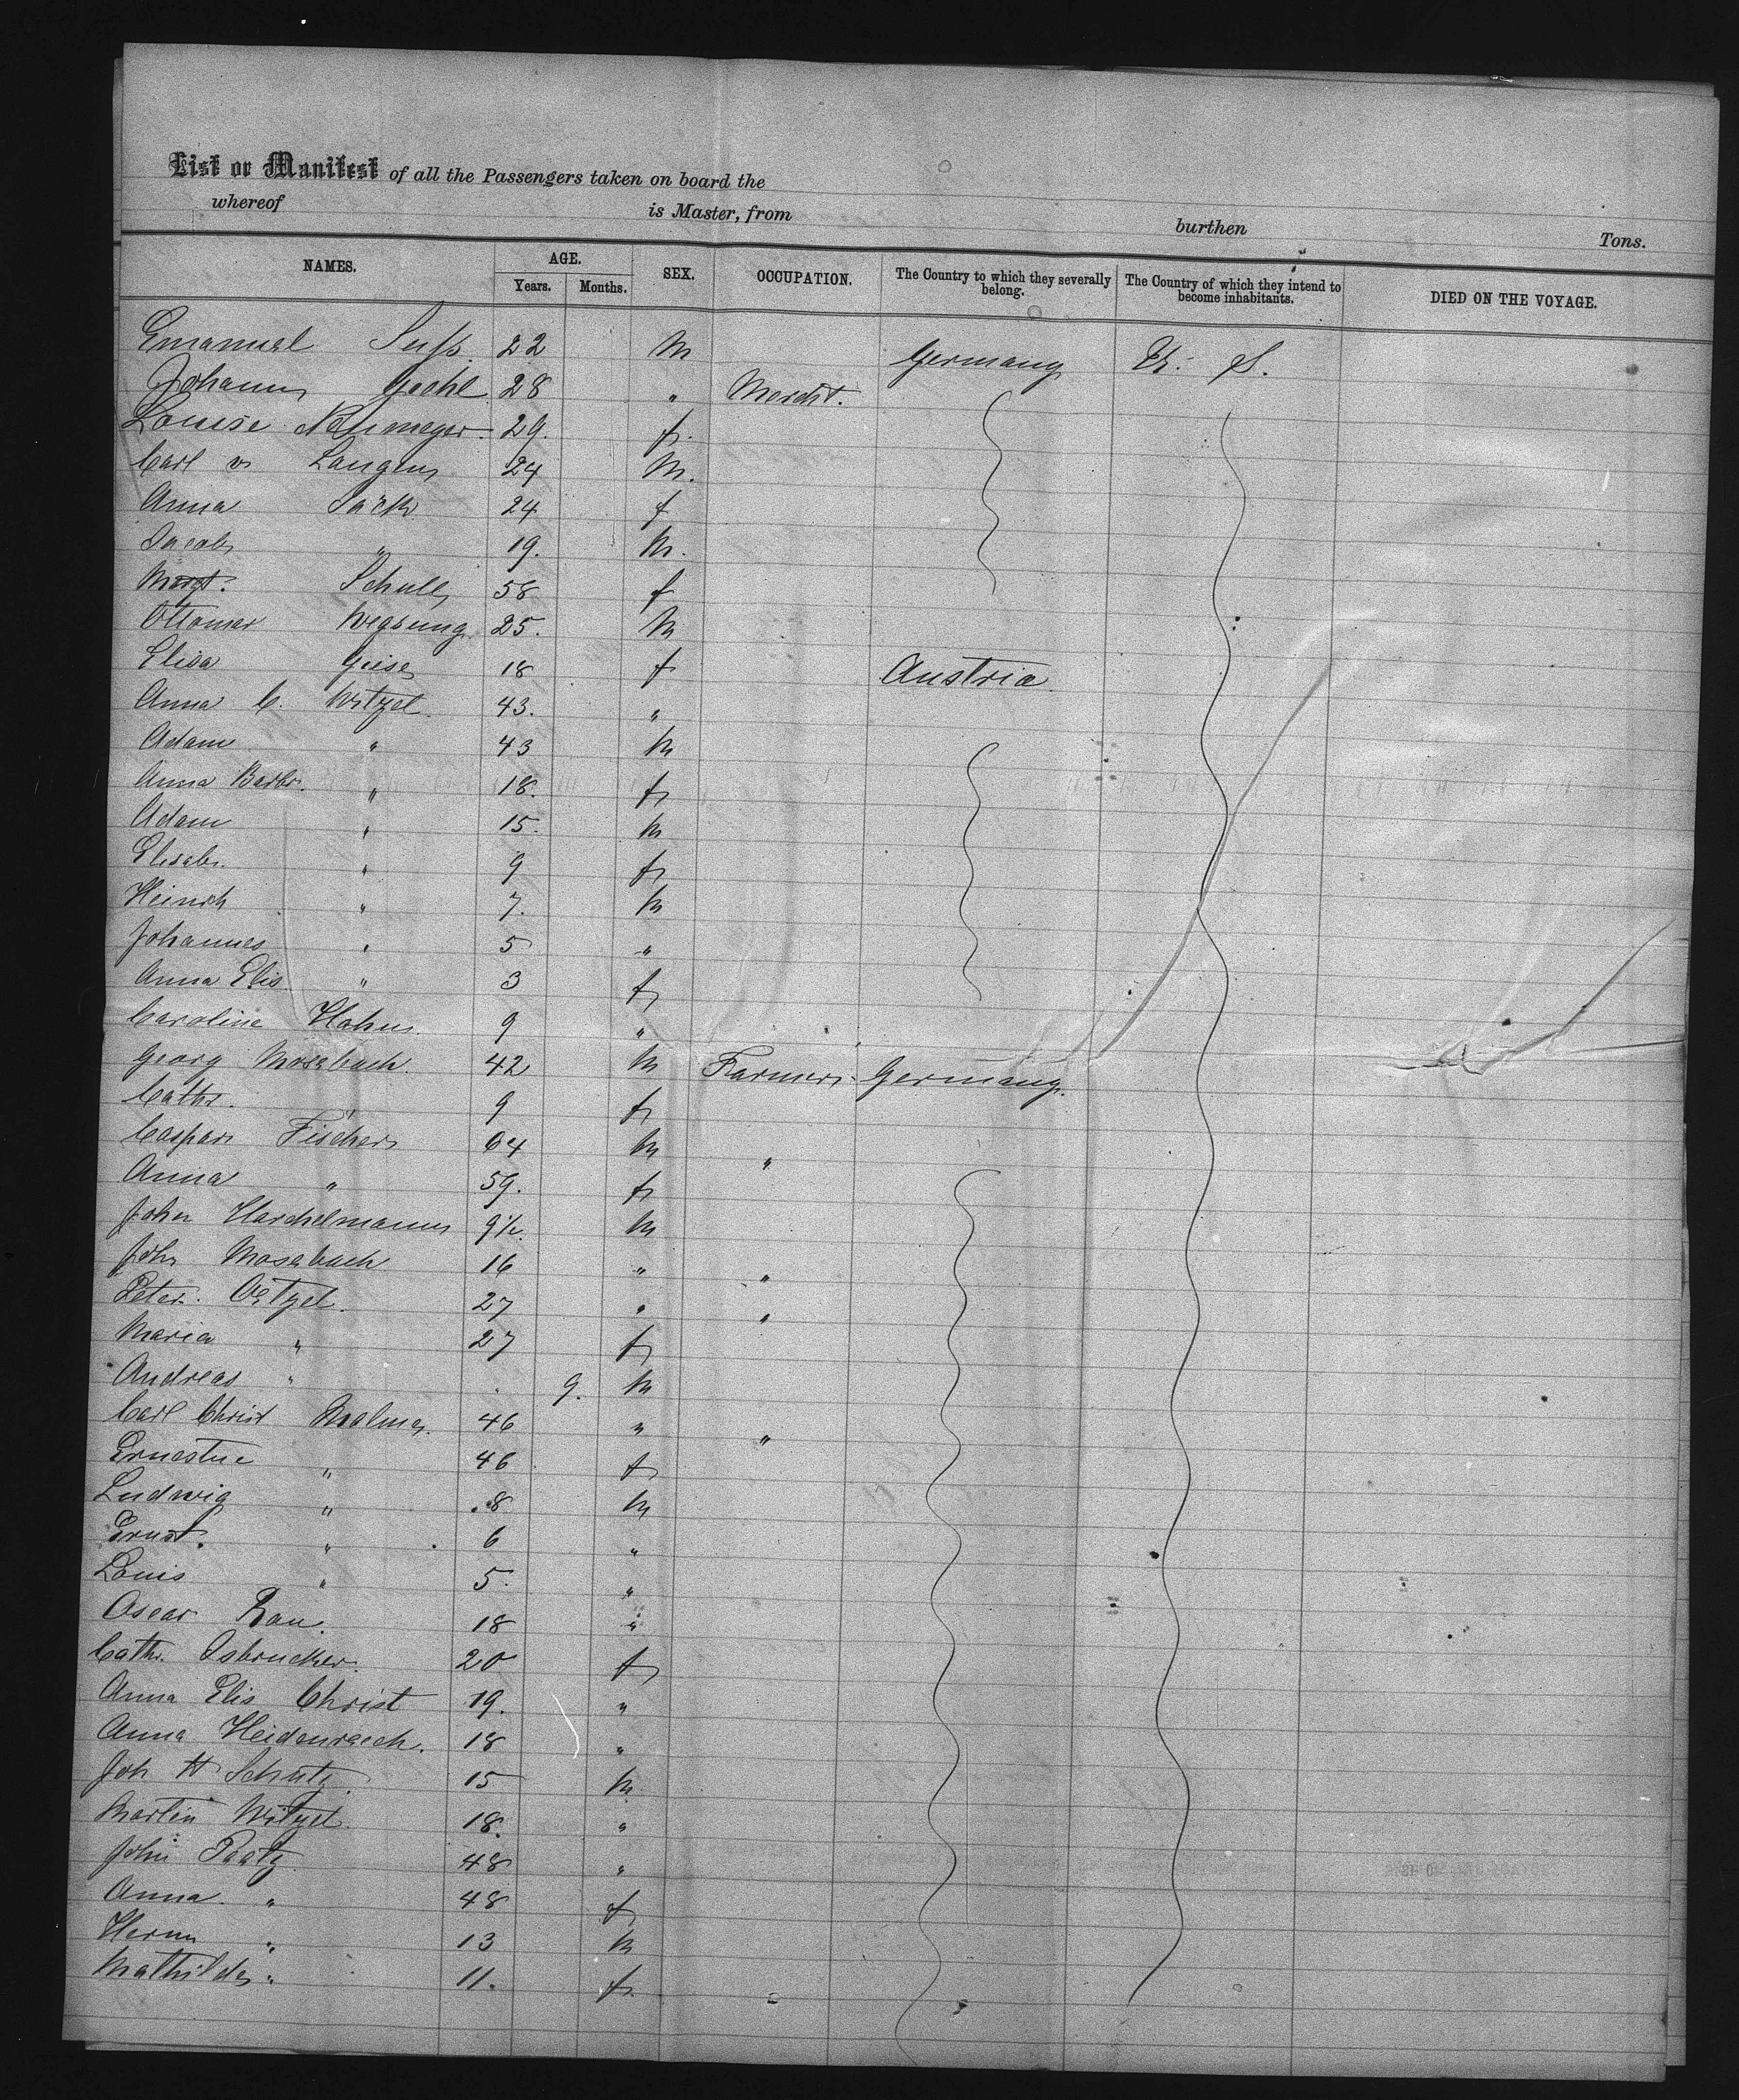 List or Manifest of all the Passengers taken on board the
whereof is Master, from burthen Tons.
NAMES. AGE. SEX. OCCUPATION. The Country to which they severally belong. The Country of which they intend to become inhabitants. DIED ON THE VOYAGE.
Years. Months.
Emanuel Suss. 22 M Germany U. S.
Johann 28 " Mercht.
Louise Neumeyer. 29. f.
Carl v Langen 24 M.
Anna Sack 24 f
Jacob " 19. M.
Margt. Schull 58 f
Ottomar 25. M
Elisa Geise 18 f Austria.
Anna C. Witzel. 43. "
Adam " 43 M
Anna Barbr. " 18. f
Adam " 15. M
Elisab. " 9 f
Heinrh " 7. M
Johannes " 5 "
Anna Elis. " 3 f
Caroline Hahn. 9 "
Georg Mosebach. 42 M Farmer. Germany.
Cathr. " 9 f
Caspar Fischer 64 M "
Anna " 59. f
John Harchelmann 9½. M
Joh. Mosebach 16 " "
Peter. Oetzel. 27 " "
Maria " 27 f
Andreas " 9. M
Carl Christ Malmes. 46 " "
Ernestue " 46 f
Ludwig " 8 M
Ernst. " 6 "
Louis " 5. "
Oscar Rau. 18 "
Cath. Isbrucker. 20 f
Anna Elis Christ 19. "
Anna Heidenreich. 18 "
Joh H Schutz 15 M
Martin Witzel. 18. "
John Paatz 48 "
Anna. " 48 f
Herm " 13 M
Mathilde " 11. f.